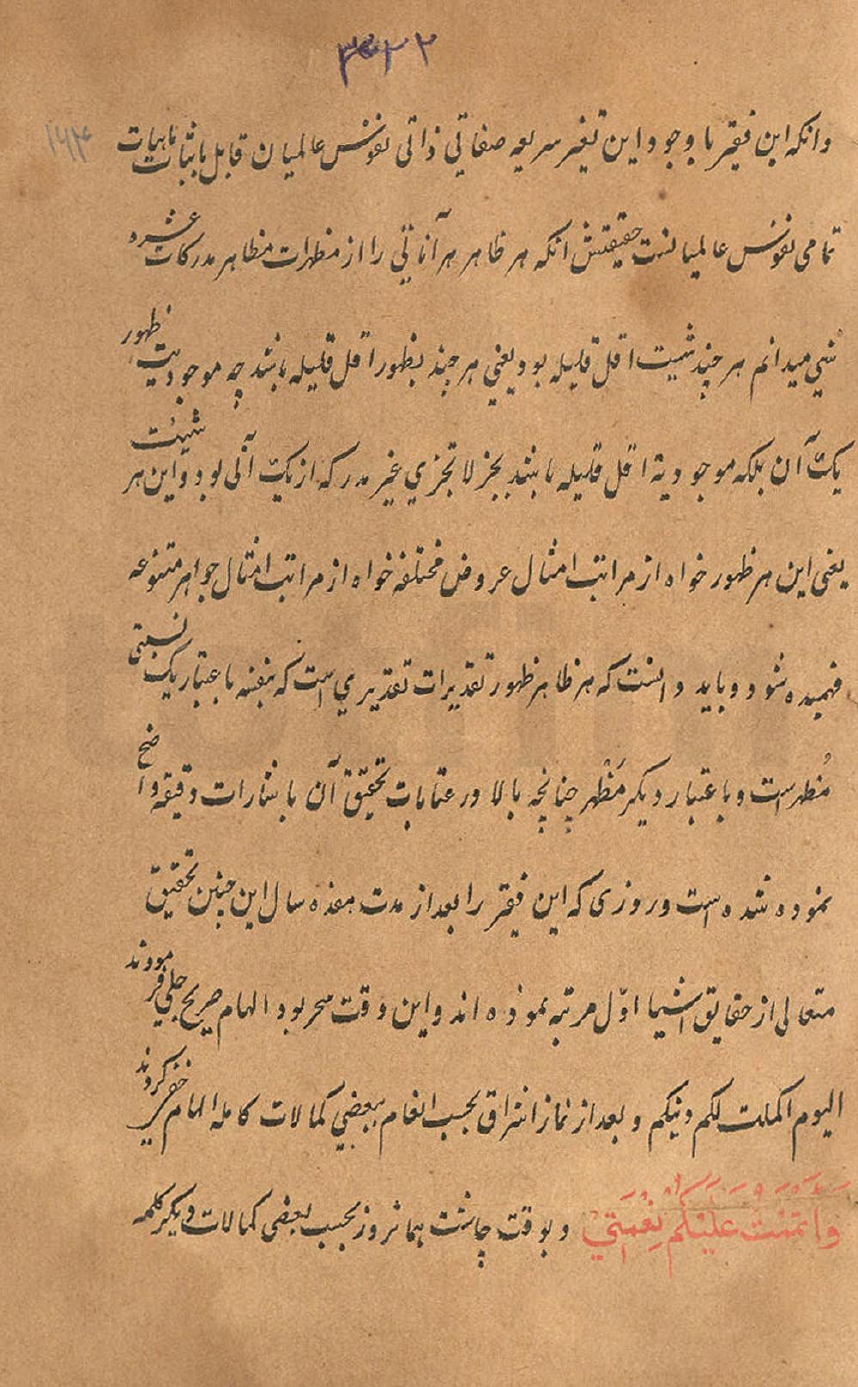 ۳۴۲۲
۱۶۳
وانکه این فقیر با وجود این تغیر سریعه صفاتی ذاتی نفوس عالمیان قابل باثبات ماهیات
تمامی نفوس عالمیانست حقیقتش انکه هر ظاهر هر آناتی را از مظهرات مظاهر مدرکات عشره
شی میدانم هر چند شیئیت اقل قلیله بود یعنی هر چند بظهور اقل قلیله باشد چه موجودیت ظهور
یک آن بلکه موجودیة اقل قلیله باشد بجز لا تجزی غیر مدرکه از یک آنی بود و این هر شیئیت
یعنی این هر ظهور خواه از مراتب امثال عروض مختلفه خواه از مراتب امثال جواهر متنوعه
فهمیده شود و باید دانست که هر ظاهر ظهور تقدیرات تقدیری است که بنفسه باعتبار یک نسبتی
مُظهرست و باعتبار دیگر مَظهر چنانچه بالا در عنایات تحقیق آن باشارات دقیقه واضح
نموده شده است و روزی که این فقیر را بعد از مدت هفده سال این چنین تحقیق
متعالی از حقایق اشیا اوّل مرتبه نموده اند و این وقت سحر بود الهام صریح جلی فرمودند
الیوم اکملت لکم دینکم و بعد از نماز اشراق بحسب انعام ببعضی کمالات کامله الهام خفی کردند
وَاَتمَمتُ عَلَیکُم نِعمَتِی و بوقت چاشت همانروز بحسب بعضی کمالات دیگر کلمه